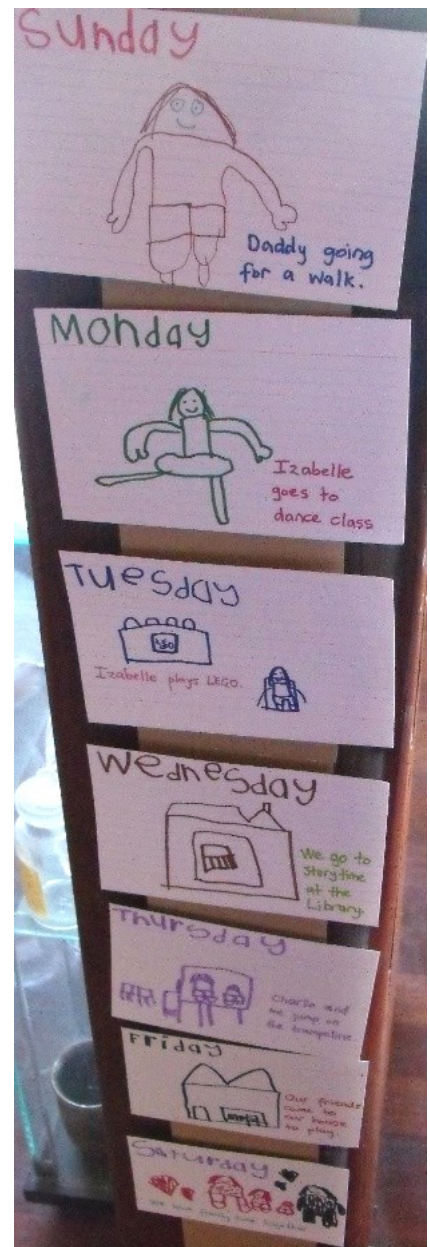 Sunday
Daddy going
for a walk.
Monday
Izabelle
goes to
dance class
Tuesday
LEGO
Izabelle plays LEGO.
Wednesday
We go to
Storytime
at the
Library.
Thursday
Charlie and
me jump on
the trampoline.
Friday
Our friends
come to
our house
to play.
Saturday
We have family time together